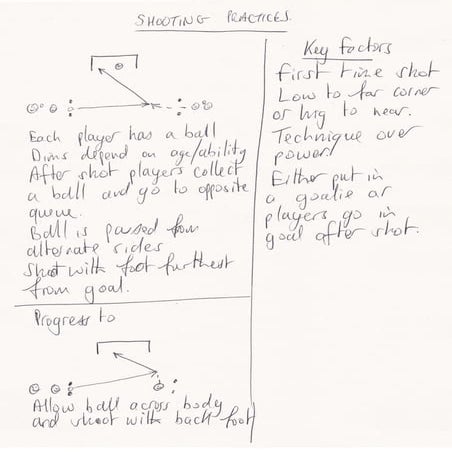 SHOOTING PRACTICES.
Each player has a ball
Dims depend on age/ability
After shot players collect
a ball and go to opposite
queue.
Ball is passed from
alternate sides
Shoot with foot furthest
from goal.
Progress to
Allow ball across body
and shoot with back foot
Key factors
First time shot
Low to far corner
or high to near.
Technique over
power!
Either put in
a goalie or
players go in
goal after shot.